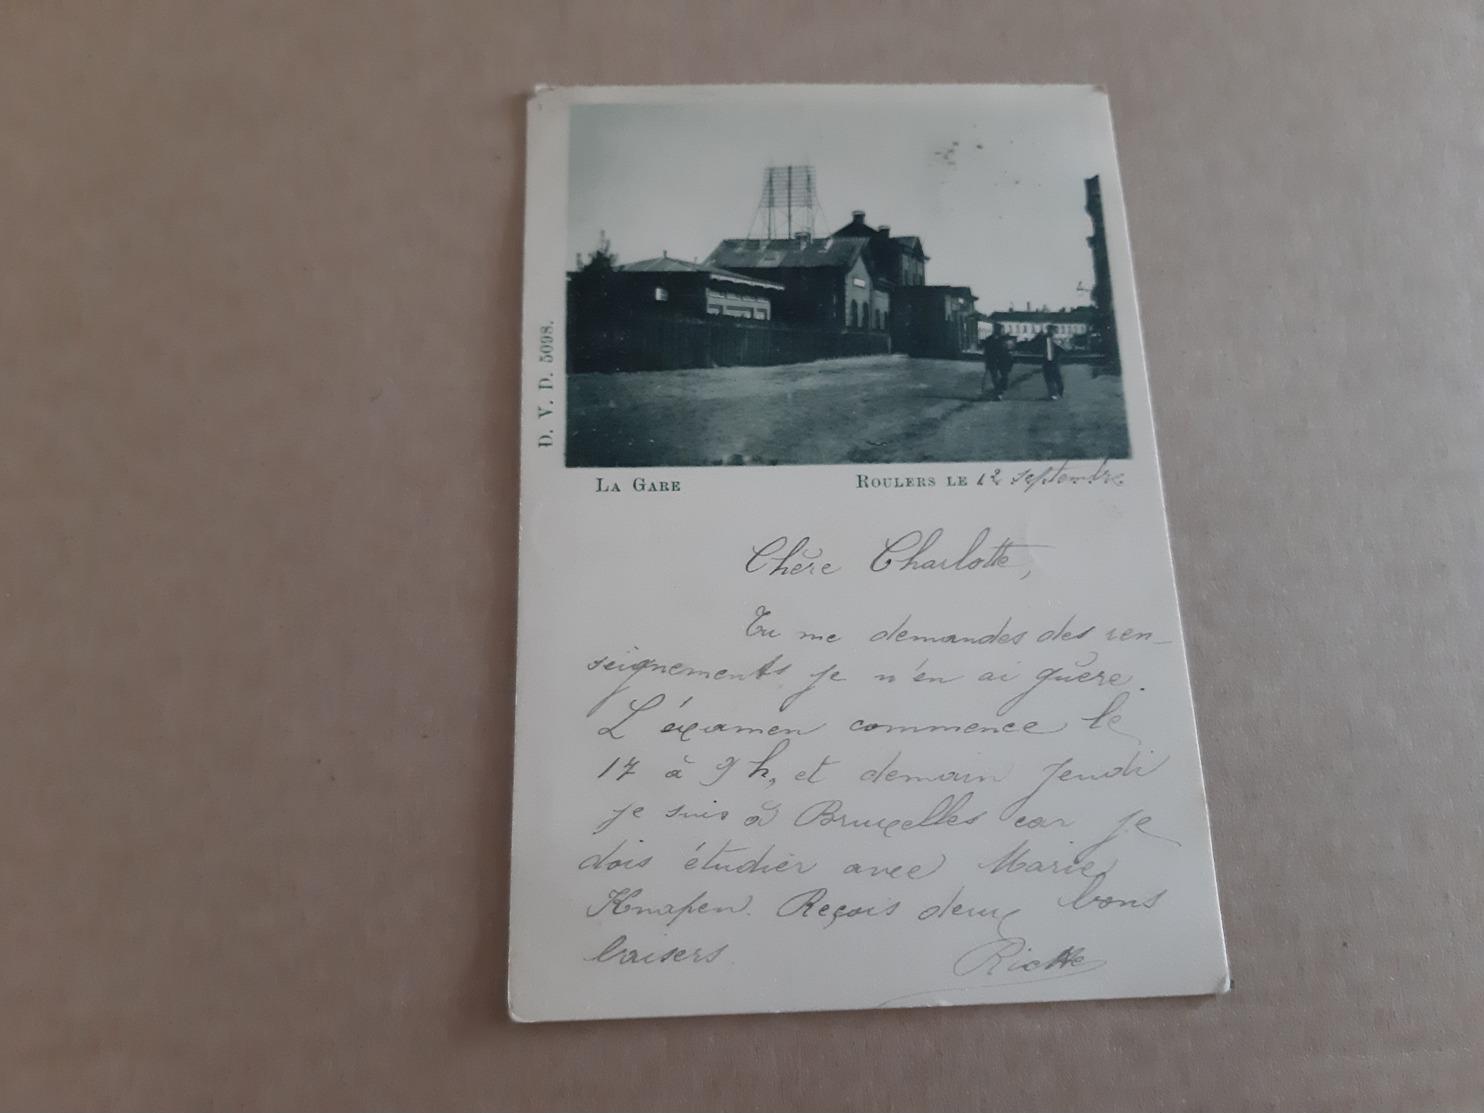 D. V. D. 5098.
LA GARE
ROULERS LE 12 septembre
Chère Charlotte,
Tu me demandes des ren-
seignements je n'en ai guère.
L'éxamen commence le
17 à 9 h, et demain Jeudi
je suis à Bruxelles car je
dois étudier avec Marie
Knapen. Reçois deux bons
baisers.